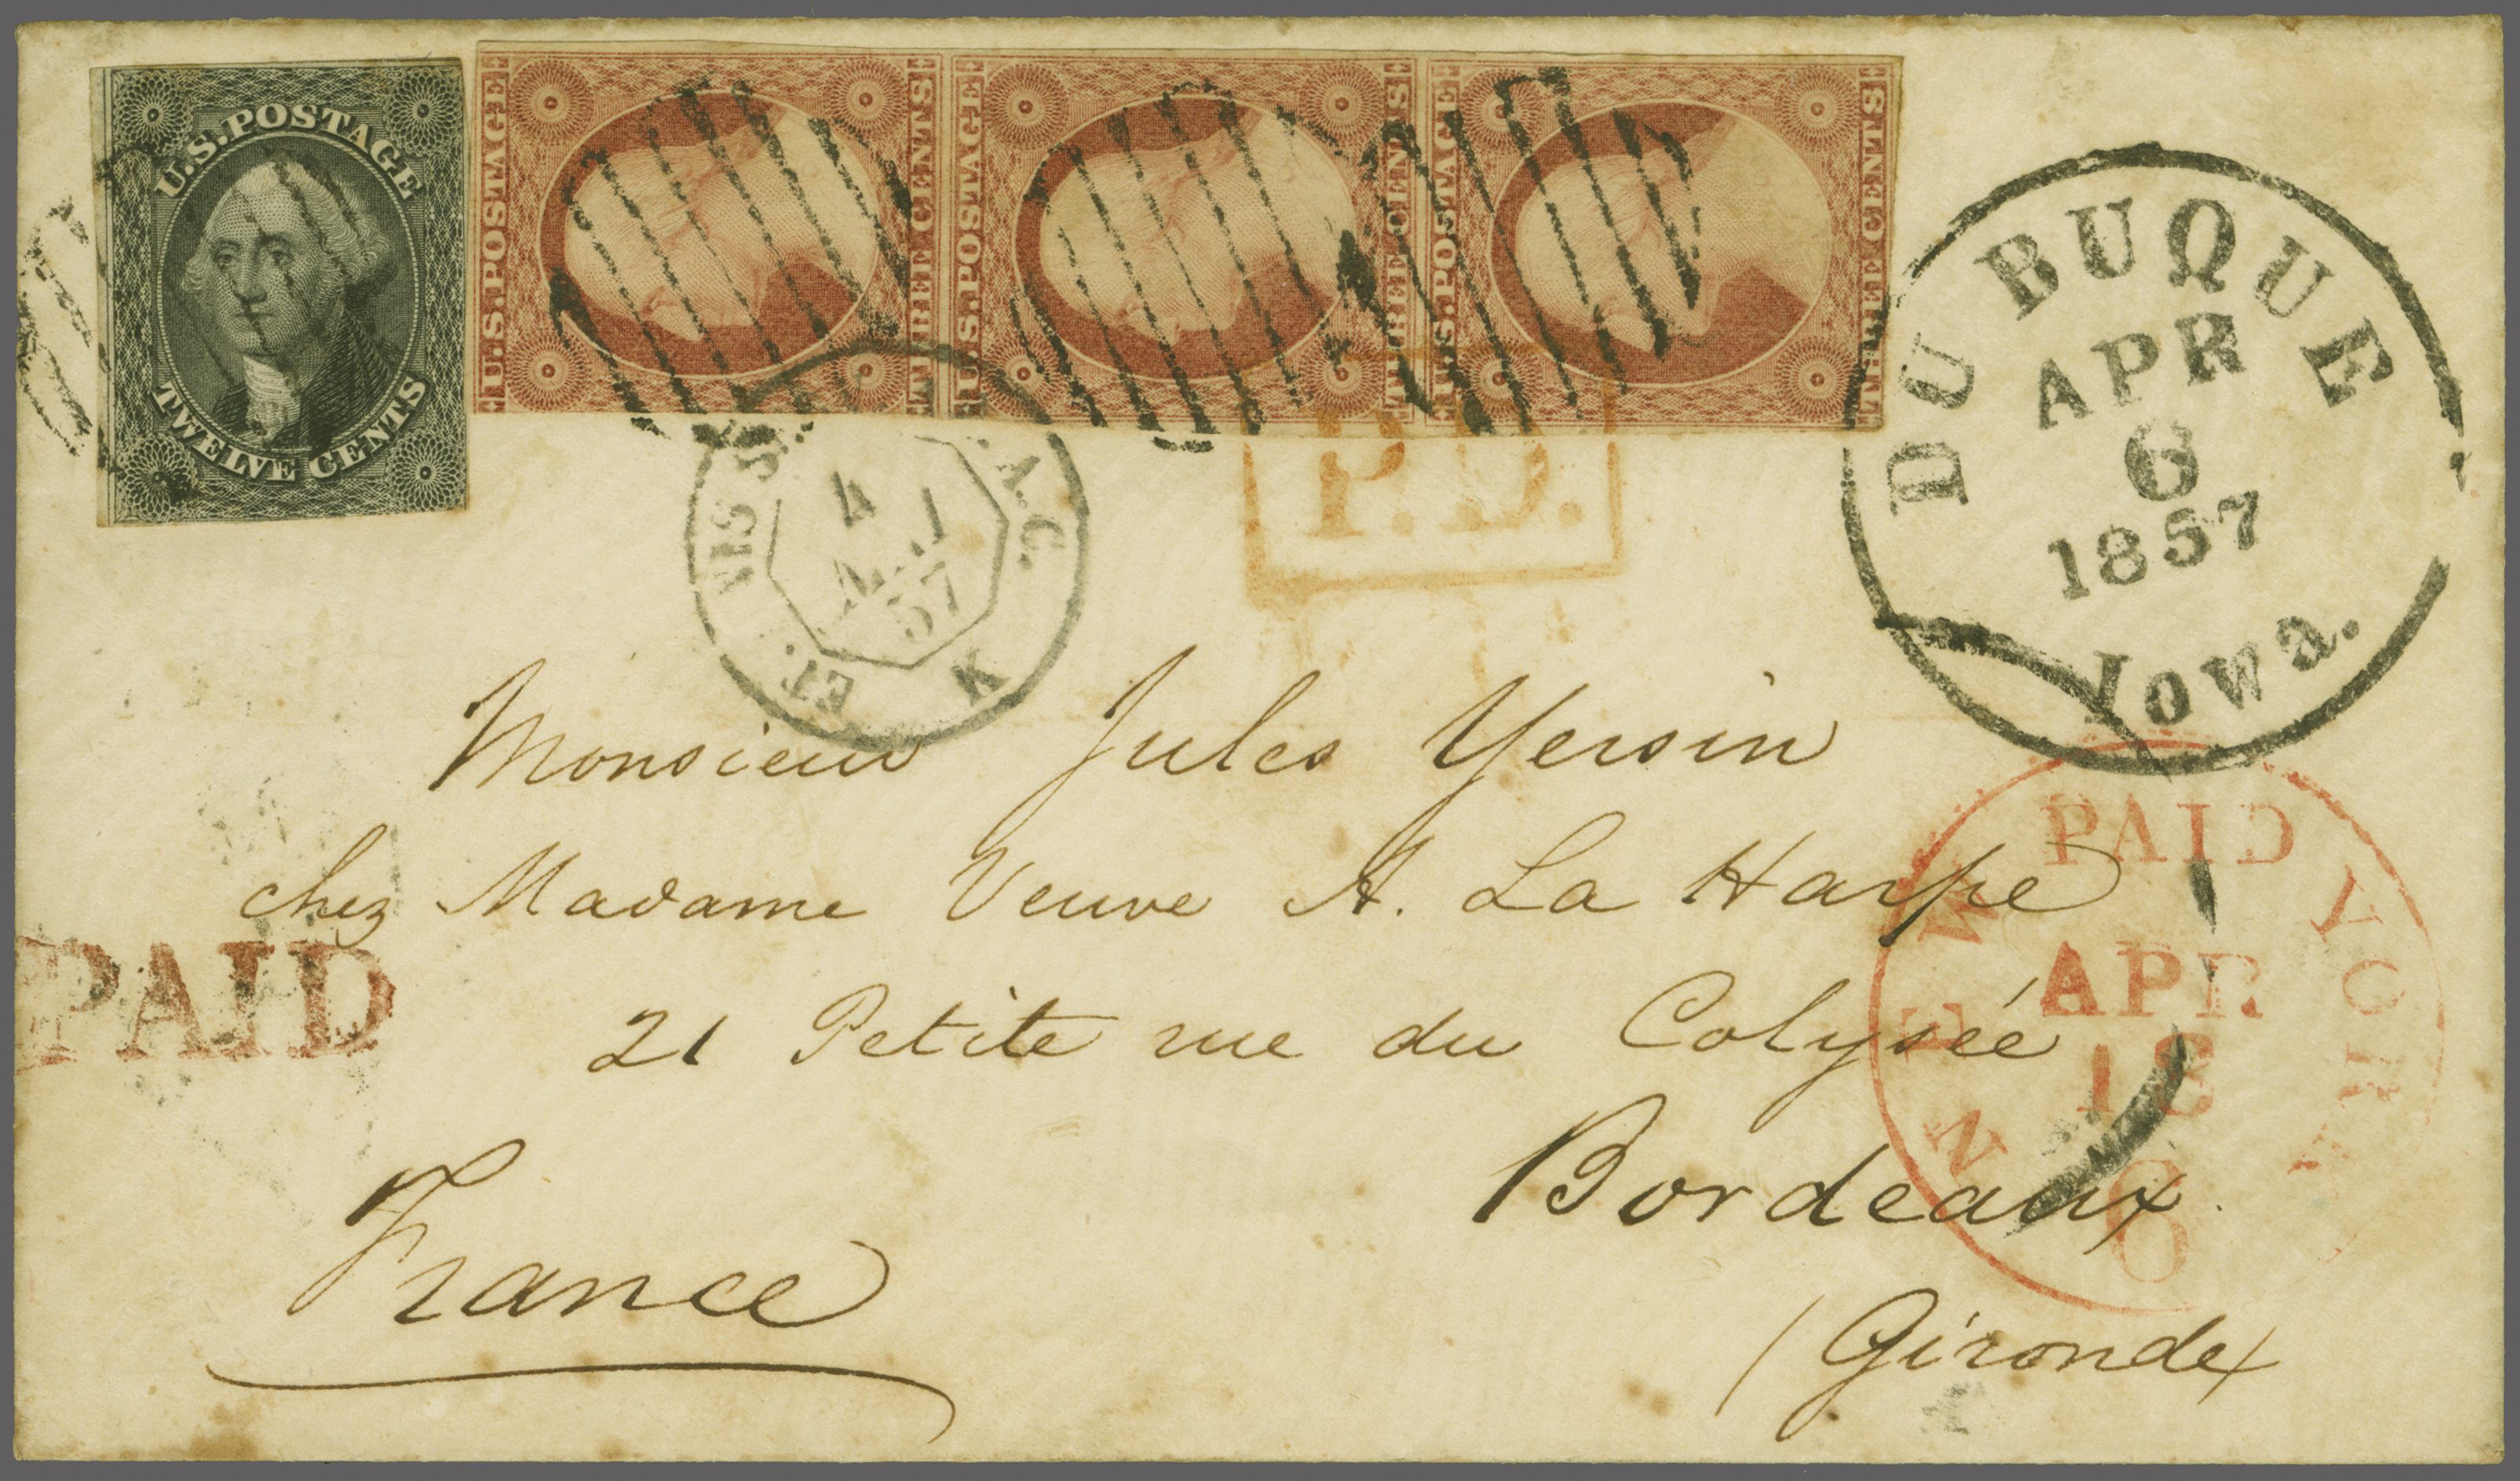 U.S. POSTAGE
TWELVE CENTS
U.S. POSTAGE
THREE CENTS
U.S. POSTAGE
THREE CENTS
U.S. POSTAGE
THREE CENTS
DUBUQUE
APR
6
1857
Iowa.
ET.
A.C.
4
57
K
P.D.
Monsieur Jules Yersin
chez Madame Veuve A. La Harpe
21 Petite rue du Colysée
Bordeaux
(Gironde)
France
PAID
NEW YORK
PAID
APR
18
6